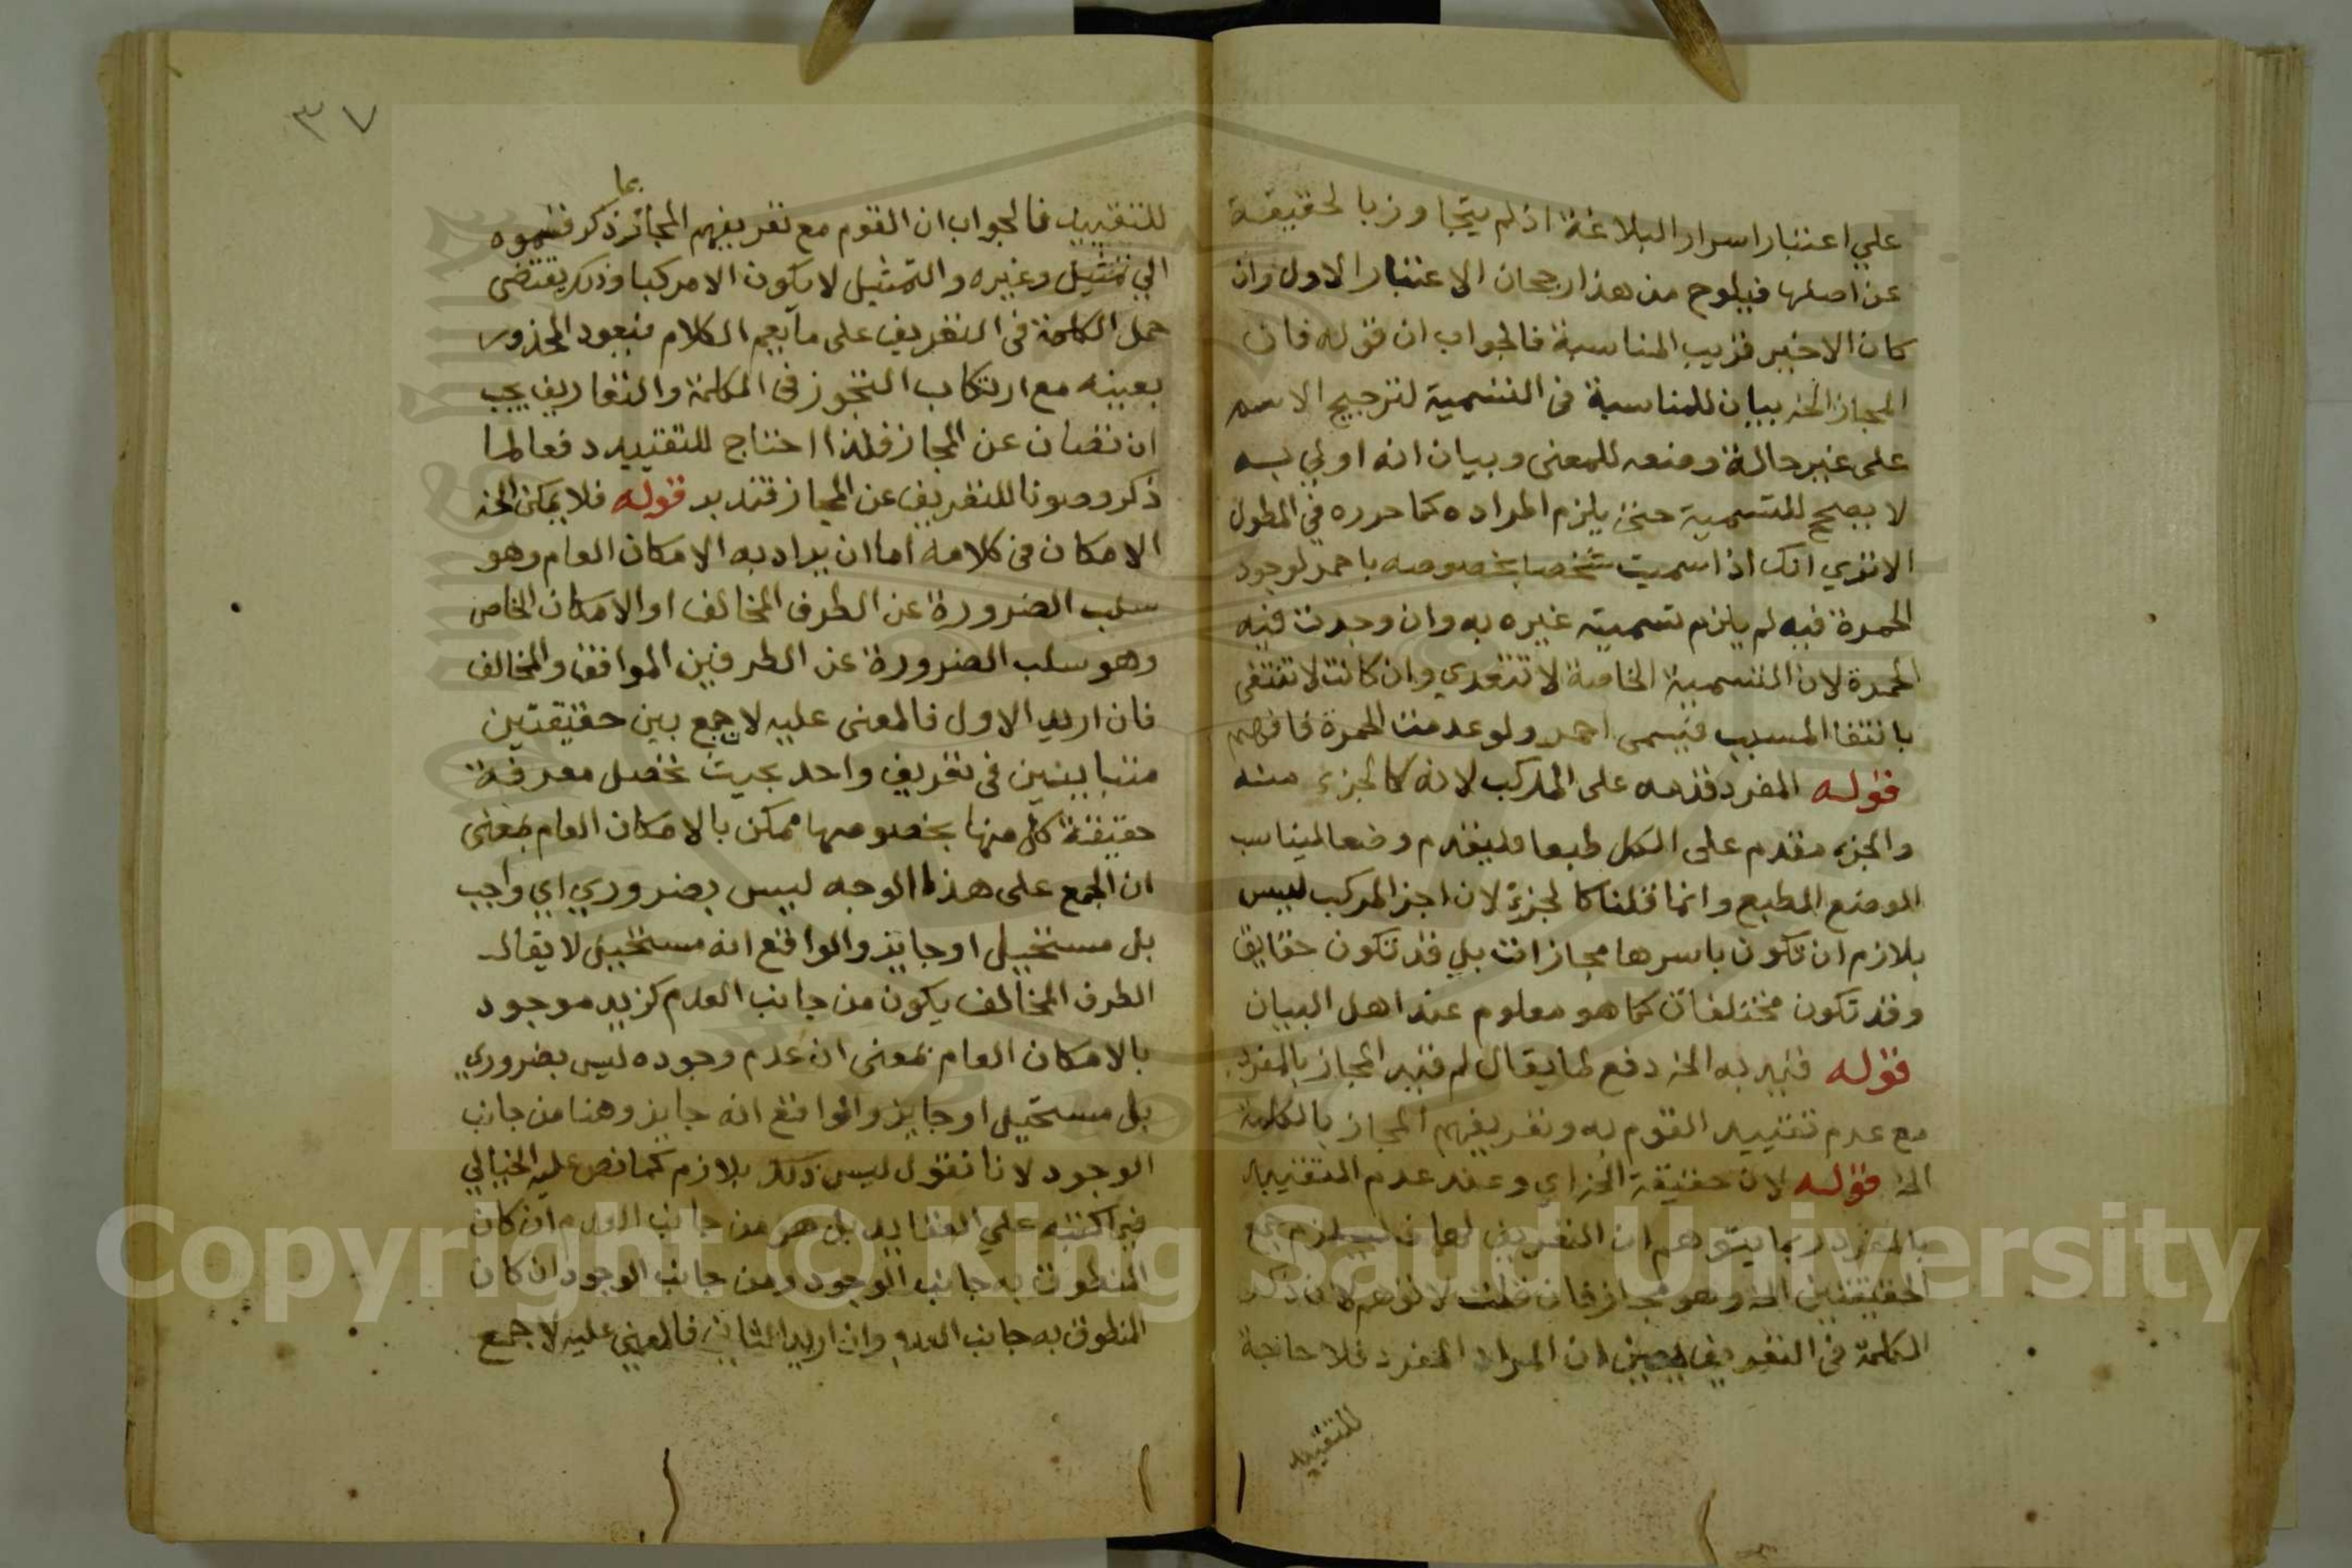 علي اعتبار اسرار البلاغة اذ لم يتجاوز بالحقيقة
عن اصلها فيلوح من هذا رجحان الاعتبار الاول وان
كان الاخير قريب المناسبة فالجواب ان قوله فان
المجاز الخ بيان للمناسبة في التسمية لترجيح الاسم
على غير حالة وضعه للمعنى وبيان انه اولي به
لا يصح للتسمية حتى يلزم اطراده كما حرره في المطول
الا تري انك اذا سميت شخصا بخصوصه باحمر لوجود
الحمرة فيه لم يلزم تسمية غيره به وان وجدت فيه
الحمرة لان التسمية الخاصة لا تتعدي وان كانت لا تنتفي
بانتفا المسبب فيسمى احمر ولو عدمت الحمرة فافهم
قوله المفرد قدمه على المركب لانه كالجزء منه
والجزء مقدم على الكل طبعا فليقدم وضعا ليناسب
الوضع الطبع وانما قلنا كالجزء لان اجز المركب ليس
بلازم ان تكون باسرها مجازات بل قد تكون حقايق
وقد تكون مختلفات كما هو معلوم عند اهل البيان
قوله قيد به الخ دفع لما يقال لم قيد المجاز بالمفرد
مع عدم تقييد القوم به وتعريفهم المجاز بالكلمة
الخ قوله لان حقيقة الخ اي وعند عدم التقييد
بالمفرد ربما يتوهم ان التعريف لهما فيلزم جمع
الحقيقتين الخ وهو مجاز فان قلت لا توهم لان ذكر
الكلمة في التعريف يعين ان المراد المفرد فلا حاجة
للتقييد
٣٧
للتقييد فالجواب ان القوم مع تعريفهم المجاز بما ذكر قسموه
الي تمثيل وغيره والتمثيل لا يكون الا مركبا وذلك يقتضى
حمل الكلمة في التعريف على ما يعم الكلام فيعود المحذور
بعينه مع ارتكاب التجوز في الكلمة والتعاريف يجب
ان تصان عن المجاز فلذا احتاج للتقييد دفعا لما
ذكر وصونا للتعريف عن المجاز فتدبر قوله فلا يمكن الخ
الامكان في كلامه اما ان يراد به الامكان العام وهو
سلب الضرورة عن الطرف المخالف او الامكان الخاص
وهو سلب الضرورة عن الطرفين الموافق والمخالف
فان اريد الاول فالمعنى عليه لا جمع بين حقيقتين
متباينتين في تعريف واحد بحيث تحصل معرفة
حقيقة كل منها بخصوصها ممكن بالامكان العام بمعنى
ان الجمع على هذا الوجه ليس بضروري اي واجب
بل مستحيل او جايز والواقع انه مستحيل لا يقال
الطرف المخالف يكون من جانب العدم كزيد موجود
بالامكان العام بمعنى ان عدم وجوده ليس بضروري
بل مستحيل او جايز والواقع انه جايز وهنا من جانب
الوجود لانا نقول ليس ذلك بلازم كما نص عليه الخيالي
فيما كتبه علي العقايد بل هو من جانب العدم ان كان
المنطوق به جانب الوجود ومن جانب الوجود ان كان
المنطوق به جانب العدم وان اريد الثاني فالمعني عليه لا جمع
Copyright © King Saud University